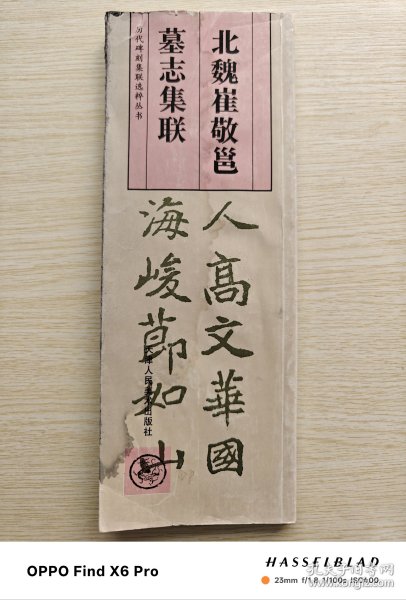 北魏崔敬邕
墓志集联
历代碑刻集联选粹丛书
人高文華國
海峻節如山
天津人民美术出版社
OPPO Find X6 Pro
HASSELBLAD
23mm f/1.8 1/100s ISO400
孔夫子旧书网